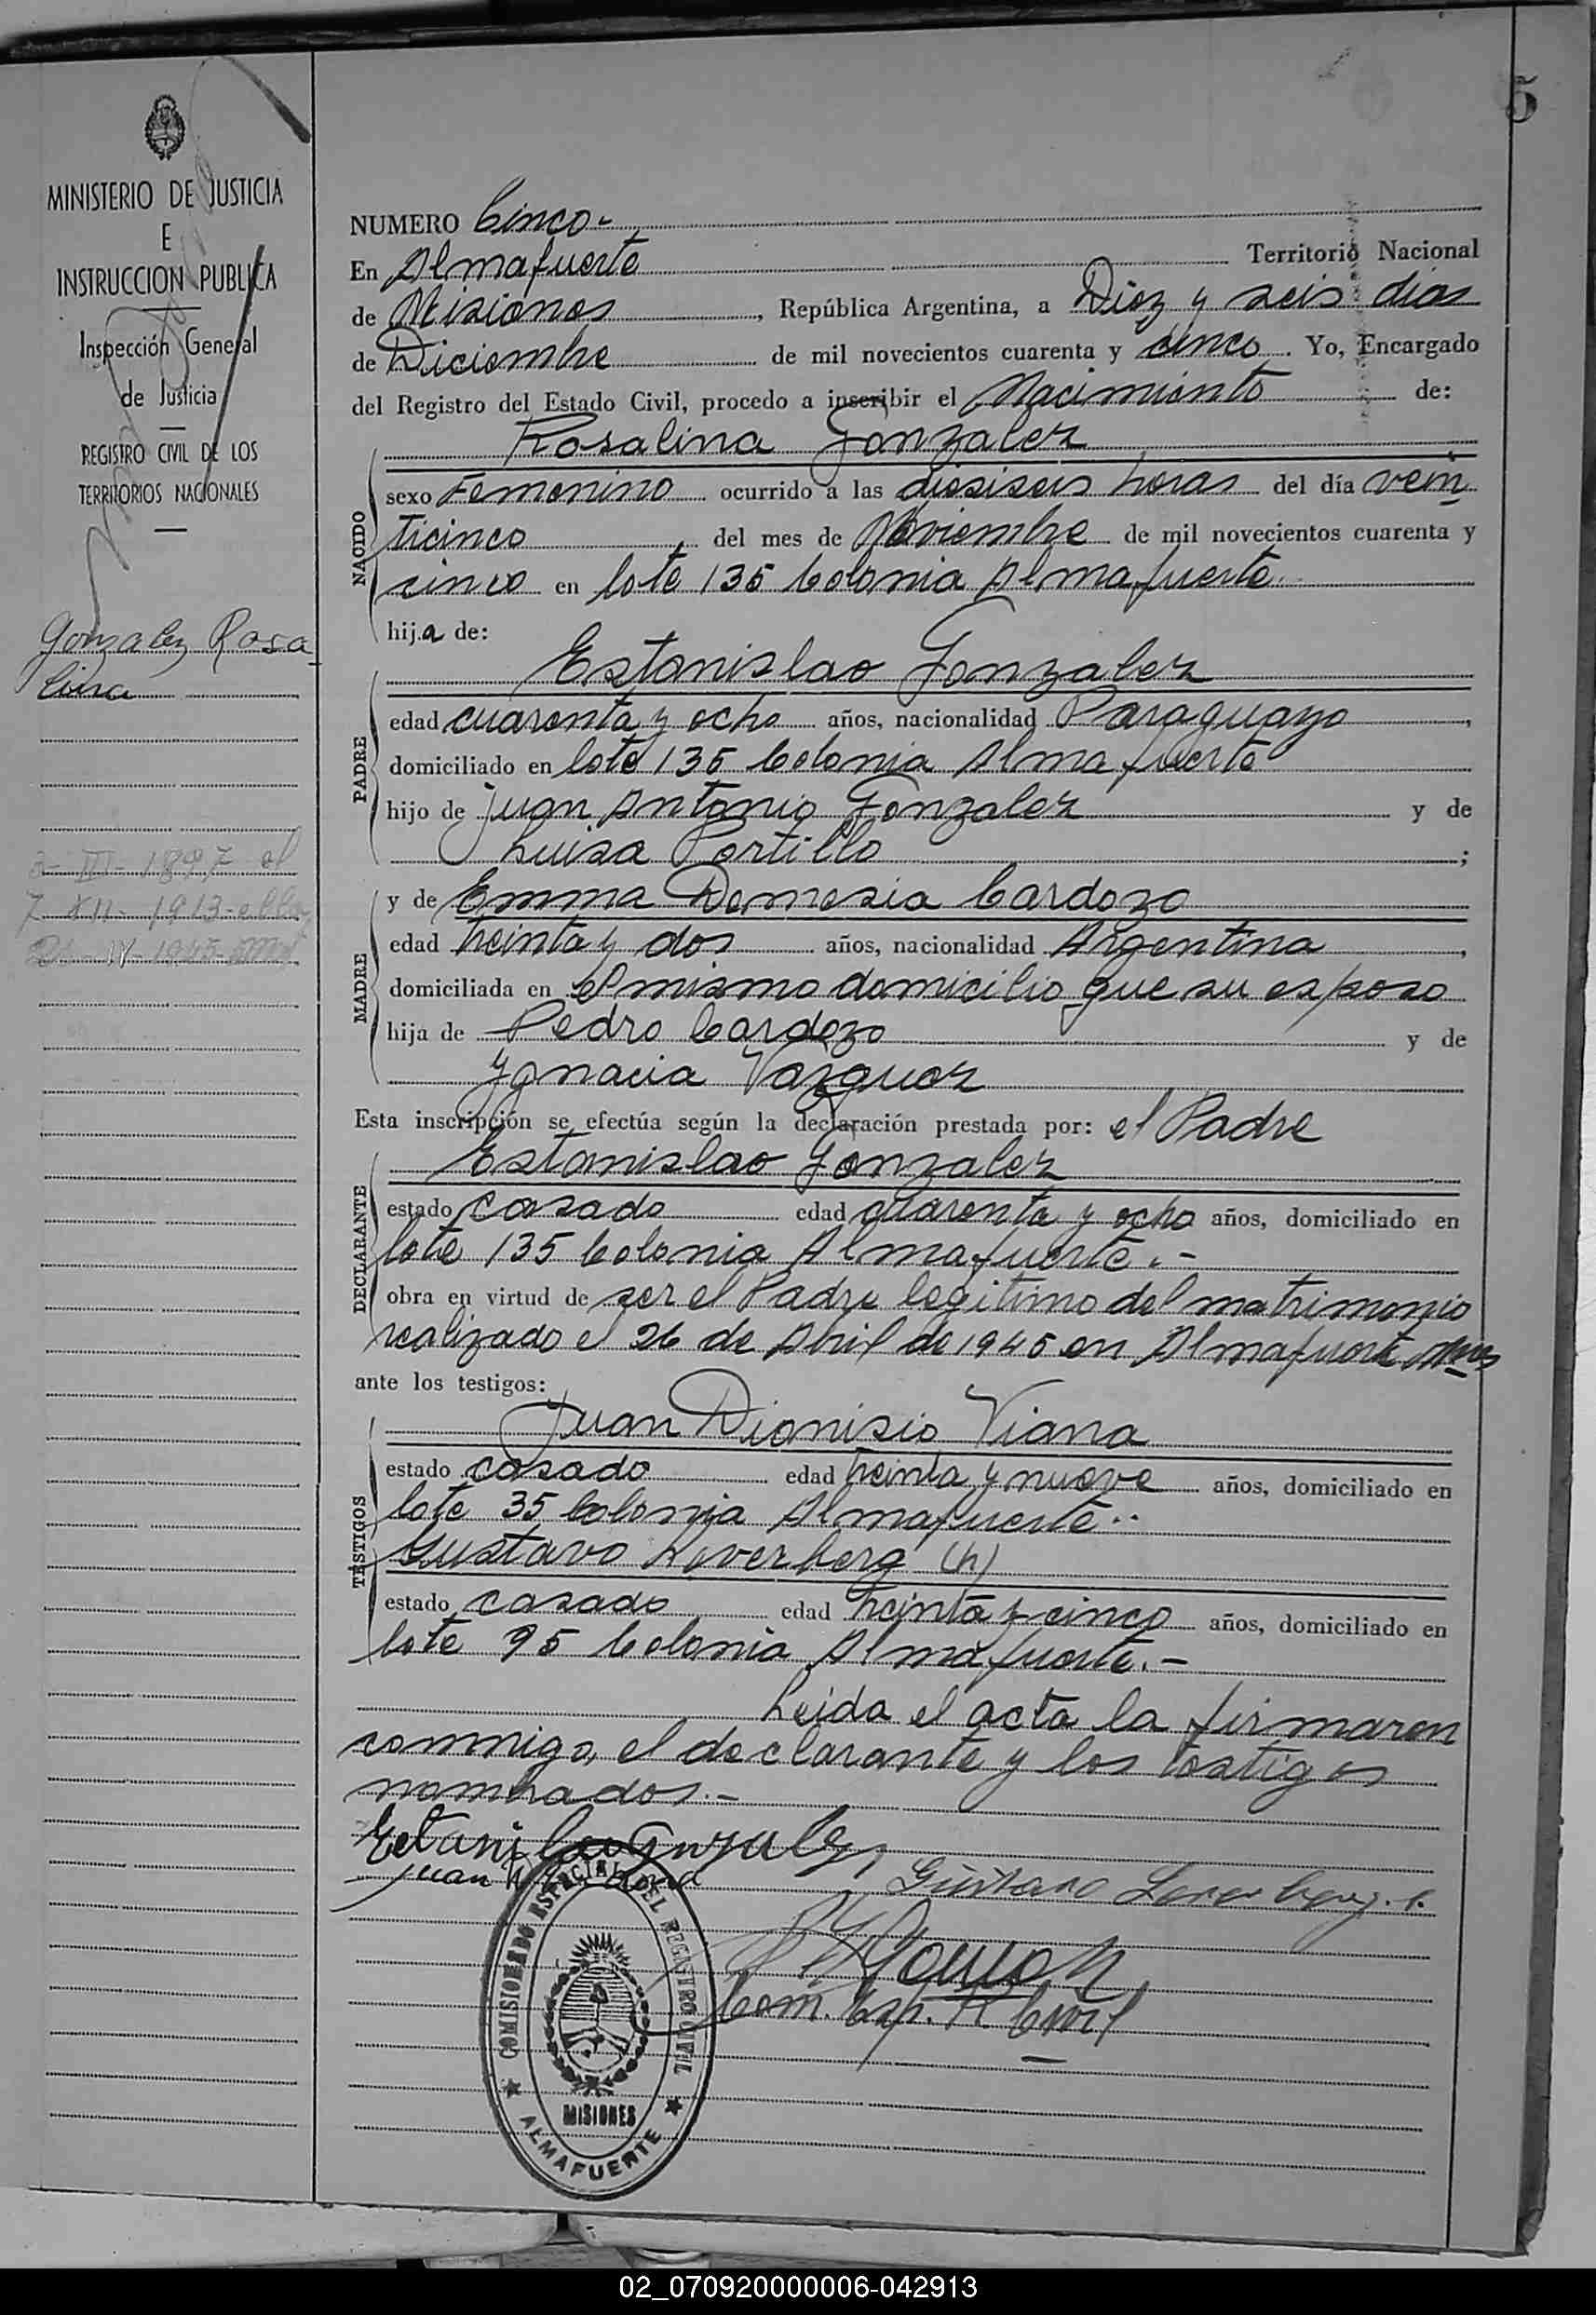 5
MINISTERIO DE JUSTICIA
E
INSTRUCCION PUBLICA
Inspección General
de Justicia
REGISTRO CIVIL DE LOS
TERRITORIOS NACIONALES
Gonzalez Rosa
lina
3-III-1897 el
7 XII-1913-ella
26-IV-1945-
NUMERO Cinco-
En Almafuerte Territorio Nacional
de Misiones, República Argentina, a Diez y seis dias
de Diciembre de mil novecientos cuarenta y cinco. Yo, Encargado
del Registro del Estado Civil, procedo a inscribir el Nacimiento de:
Rosalina Gonzalez
NACIDO
sexo Femenino ocurrido a las diesiseis horas del día vein
ticinco, del mes de Noviembre de mil novecientos cuarenta y
cinco en lote 135 Colonia Almafuerte.
hija de:
Estanislao Gonzalez
PADRE
edad cuarenta y ocho años, nacionalidad Paraguayo,
domiciliado en lote 135 Colonia Almafuerte
hijo de Juan Antonio Gonzalez y de
Luisa Portillo;
y de Emma Demesia Cardozo
MADRE
edad treinta y dos años, nacionalidad Argentina,
domiciliada en el mismo domicilio que su esposo
hija de Pedro Cardozo y de
Ygnacia Vazquez
Esta inscripción se efectúa según la declaración prestada por: el Padre
Estanislao Gonzalez
DECLARANTE
estado casado edad cuarenta y ocho años, domiciliado en
lote 135 Colonia Almafuerte.-
obra en virtud de ser el Padre legitimo del matrimonio
realizado el 26 de Abril de 1945 en Almafuerte Mnes
ante los testigos:
Juan Dionisio Viana
TESTIGOS
estado casado edad treinta y nueve años, domiciliado en
lote 35 Colonia Almafuerte..
Gustavo Loverberg (h)
estado casado edad treinta y cinco años, domiciliado en
lote 95 Colonia Almafuerte.-
Leida el acta la firmaron
conmigo, el declarante y los testigos
nombrados.-
Juan
Gustavo
Com. Esp. R. Civil
COMISIONADO ESPECIAL DEL REGISTRO CIVIL
MISIONES
ALMAFUERTE
02_070920000006-042913